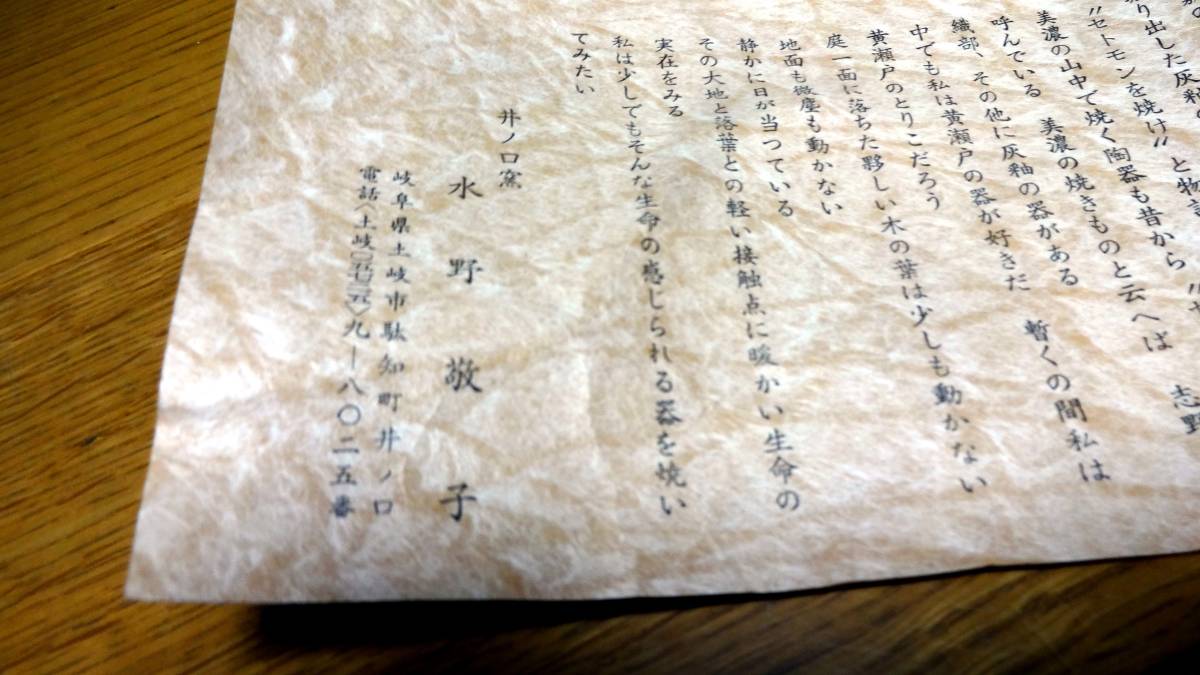 り出した灰釉
"セトモンを焼け" と物言
美濃の山中で焼く陶器も昔から
呼んでいる 美濃の焼きものと云へば 志野
織部、その他に灰釉の器がある
中でも私は黄瀬戸の器が好きだ 暫くの間私は
黄瀬戸のとりこだろう
庭一面に落ちた夥しい木の葉は少しも動かない
地面も微塵も動かない
静かに日が当つている
その大地と落葉との軽い接触点に暖かい生命の
実在をみる
私は少しでもそんな生命の感じられる器を焼い
てみたい
井ノ口窯
水野敬子
岐阜県土岐市駄知町井ノ口
電話〈土岐〉九―八〇二五番